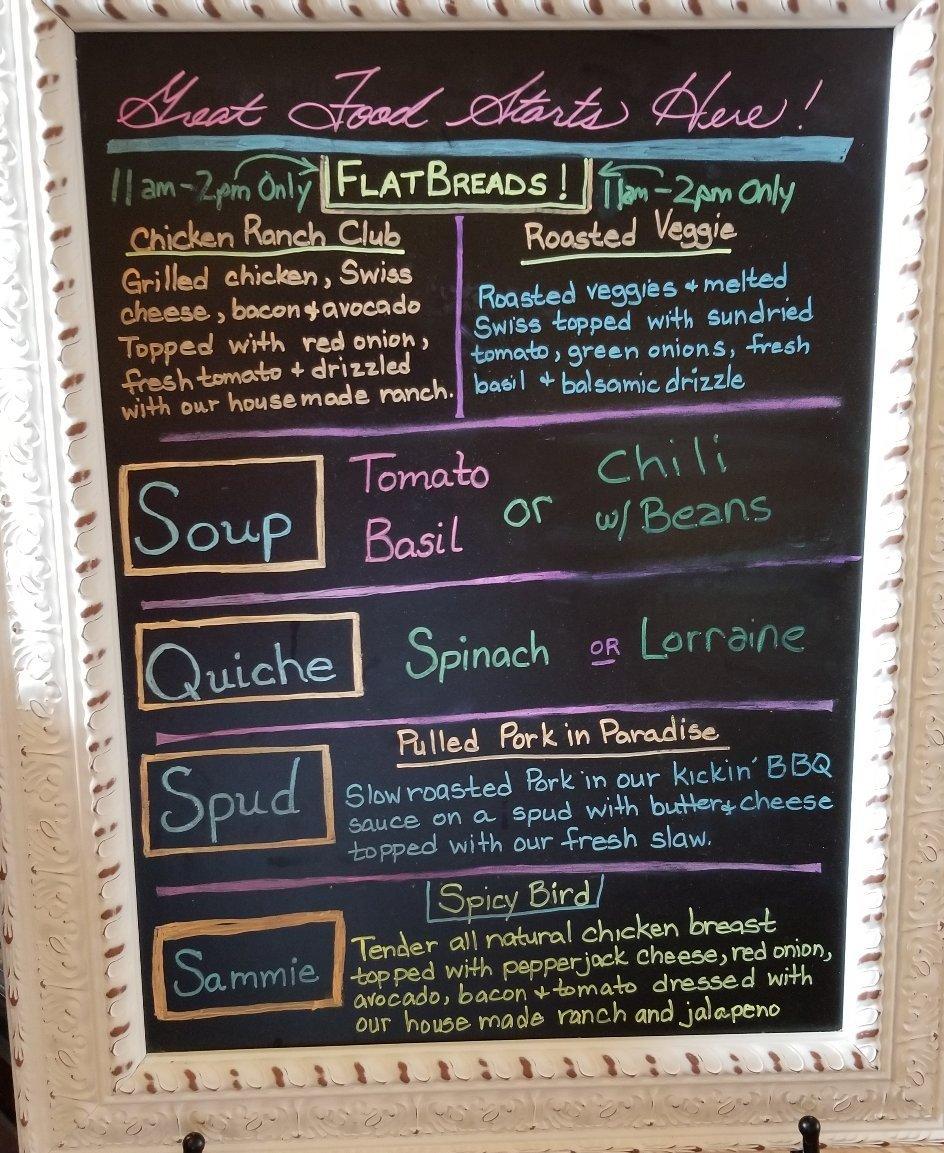 Great Food Starts Here!
11am-2pm Only FLATBREADS! 11am-2pm Only
Chicken Ranch Club
Grilled chicken, Swiss
cheese, bacon & avocado
Topped with red onion,
fresh tomato + drizzled
with our house made ranch.
Roasted Veggie
Roasted veggies + melted
Swiss topped with sundried
tomato, green onions, fresh
basil + balsamic drizzle
Soup
Tomato
Basil
or
Chili
w/ Beans
Quiche
Spinach OR Lorraine
Spud
Pulled Pork in Paradise
Slow roasted Pork in our kickin' BBQ
sauce on a spud with butter & cheese
topped with our fresh slaw.
Sammie
Spicy Bird
Tender all natural chicken breast
topped with pepperjack cheese, red onion,
avocado, bacon + tomato dressed with
our house made ranch and jalapeno